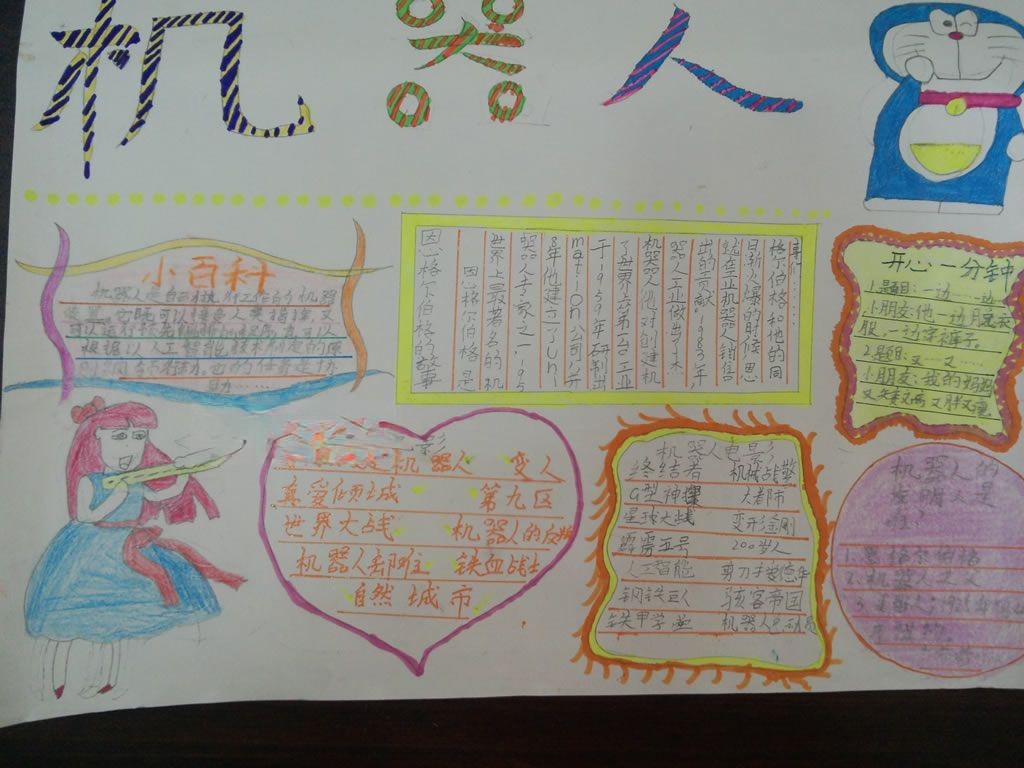 机器人
小百科
机器人是自动执行工作的机器
装置。它既可以接受人类指挥,又
可以运行预先编排的程序,也可以
根据以人工智能技术制定的原
协助
因格尔伯格的故事
因恩格尔伯格是
世界上最著名的机
器人专家之一,195
8年他建立了Uni-
mation公司,并
于1959年研制出
了世界上第一台工业
机器人,他对创建机
器人工业做出了杰
出的贡献。1983年,
就在工业机器人销售
日渐火爆的时候,恩
格尔伯格和他的同
事们……
开心一分钟
1.题目:一边……一边
小朋友:他一边脱衣
服,一边穿裤子。
2.题目:又……又……
小朋友:我的妈妈
又矮又高又胖又瘦
影
机器人 变人
真爱倾城 第九区
世界大战 机器人的反叛
机器人部队 铁血战士
自然城市
机器人电影
终结者 机械战警
G型神探 大都市
星球大战 变形金刚
霹雳五号 200岁人
人工智能 剪刀手爱德华
钢铁巨人 骇客帝国
铁甲学堂
机器人的
发明人是
谁?
1.恩格尔伯格
2.机器人之父